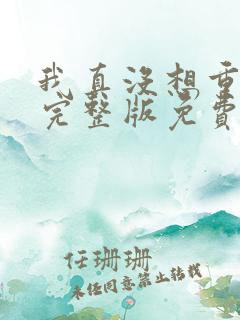 我真没想重
完整版免费
任珊珊
未经同意禁止转载